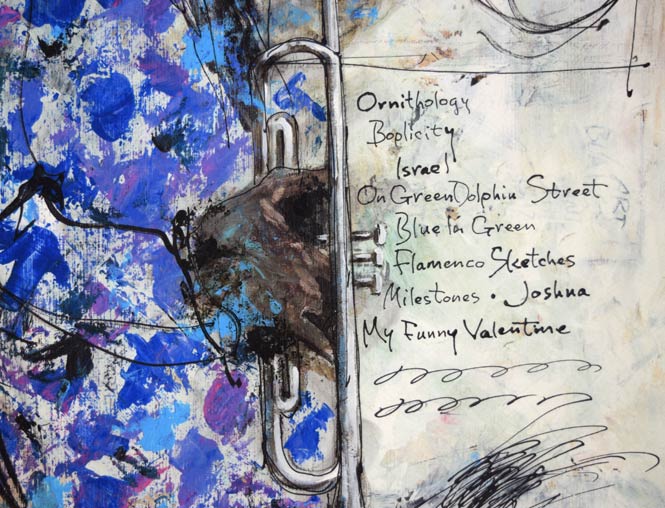 Ornithology
Boplicity
Israel
On Green Dolphin Street
Blue in Green
Flamenco Sketches
Milestones • Joshua
My Funny Valentine